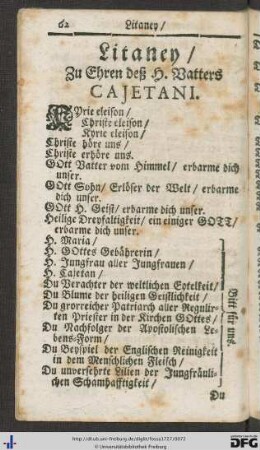 62 Litaney /
Litaney /
Zu Ehren deß H. Vatters
CAJETANI.
KYrie eleison /
Christe eleison /
Kyrie eleison /
Christe höre uns /
Christe erhöre uns.
GOtt Vatter vom Himmel / erbarme dich
unser.
GOtt Sohn / Erlöser der Welt / erbarme
dich unser.
GOtt H. Geist / erbarme dich unser.
Heilige Dreyfaltigkeit / ein einiger GOTT /
erbarme dich unser.
H. Maria /
H. GOttes Gebährerin /
H. Jungfrau aller Jungfrauen /
H. Cajetan /
Du Verachter der weltlichen Eytelkeit /
Du Blume der heiligen Geistlichkeit /
Du glorreicher Patriarch aller Regulir-
ten Priester in der Kirchen GOttes /
Du Nachfolger der Apostolischen Le-
bens-Form /
Du Beyspiel der Englischen Reinigkeit
in dem Menschlichen Fleisch /
Du unversehrte Lilien der Jungfräuli-
chen Schamhafftigkeit /
Bitt für uns.
Du
© Universitätsbibliothek Freiburg
gefördert durch die
DFG